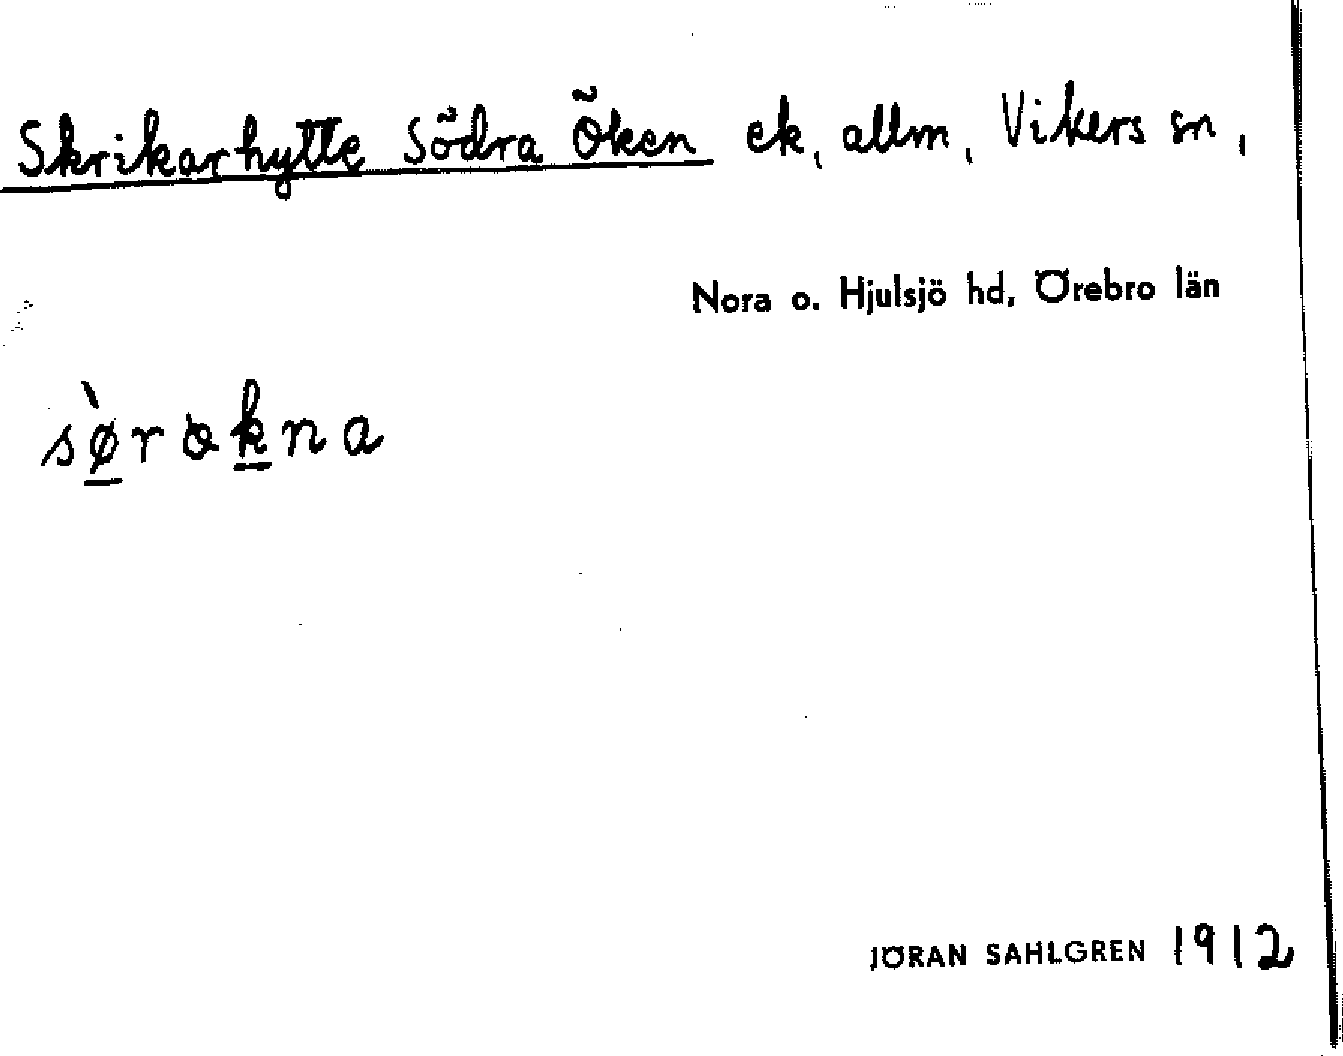 Skrikarhytte Södra Öken ek, allm, Vikers sn,
Nora o. Hjulsjö hd, Örebro län
sø̠̀rok̠na
JÖRAN SAHLGREN 1912